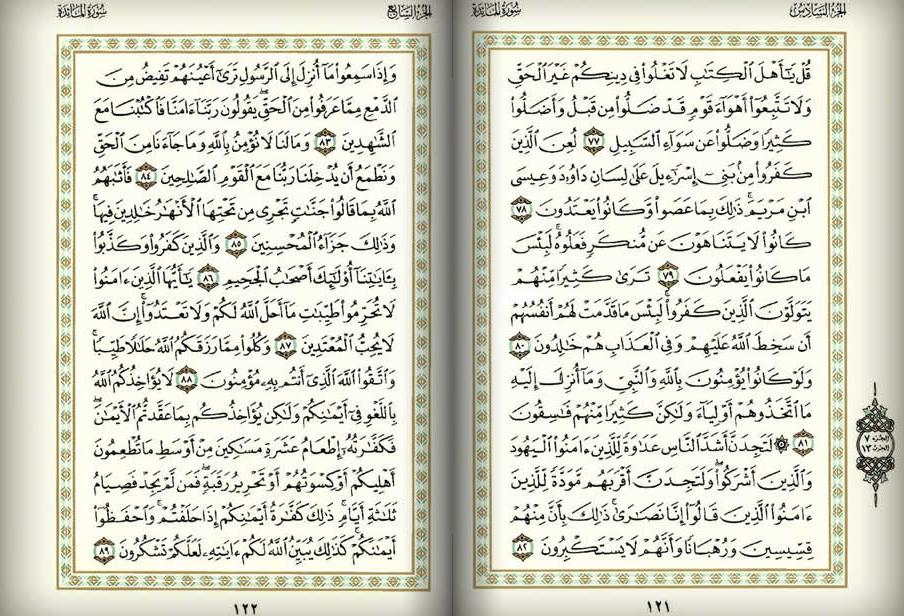 الجزء السادس
سورة المائدة
قُلْ يَٰٓأَهْلَ ٱلْكِتَٰبِ لَا تَغْلُوا۟ فِى دِينِكُمْ غَيْرَ ٱلْحَقِّ
وَلَا تَتَّبِعُوٓا۟ أَهْوَآءَ قَوْمٍ قَدْ ضَلُّوا۟ مِن قَبْلُ وَأَضَلُّوا۟
كَثِيرًا وَضَلُّوا۟ عَن سَوَآءِ ٱلسَّبِيلِ ٧٧ لُعِنَ ٱلَّذِينَ
كَفَرُوا۟ مِنۢ بَنِىٓ إِسْرَٰٓءِيلَ عَلَىٰ لِسَانِ دَاوُۥدَ وَعِيسَى
ٱبْنِ مَرْيَمَ ۚ ذَٰلِكَ بِمَا عَصَوا۟ وَّكَانُوا۟ يَعْتَدُونَ ٧٨
كَانُوا۟ لَا يَتَنَاهَوْنَ عَن مُّنكَرٍ فَعَلُوهُ ۚ لَبِئْسَ
مَا كَانُوا۟ يَفْعَلُونَ ٧٩ تَرَىٰ كَثِيرًا مِّنْهُمْ
يَتَوَلَّوْنَ ٱلَّذِينَ كَفَرُوا۟ ۚ لَبِئْسَ مَا قَدَّمَتْ لَهُمْ أَنفُسُهُمْ
أَن سَخِطَ ٱللَّهُ عَلَيْهِمْ وَفِى ٱلْعَذَابِ هُمْ خَٰلِدُونَ ٨٠
وَلَوْ كَانُوا۟ يُؤْمِنُونَ بِٱللَّهِ وَٱلنَّبِىِّ وَمَآ أُنزِلَ إِلَيْهِ
مَا ٱتَّخَذُوهُمْ أَوْلِيَآءَ وَلَٰكِنَّ كَثِيرًا مِّنْهُمْ فَٰسِقُونَ
٨١ ۞ لَتَجِدَنَّ أَشَدَّ ٱلنَّاسِ عَدَٰوَةً لِّلَّذِينَ ءَامَنُوا۟ ٱلْيَهُودَ
وَٱلَّذِينَ أَشْرَكُوا۟ ۖ وَلَتَجِدَنَّ أَقْرَبَهُم مَّوَدَّةً لِّلَّذِينَ
ءَامَنُوا۟ ٱلَّذِينَ قَالُوٓا۟ إِنَّا نَصَٰرَىٰ ۚ ذَٰلِكَ بِأَنَّ مِنْهُمْ
قِسِّيسِينَ وَرُهْبَانًا وَأَنَّهُمْ لَا يَسْتَكْبِرُونَ ٨٢
الجزء ٧
الحزب ١٣
١٢١
الجزء السابع
سورة المائدة
وَإِذَا سَمِعُوا۟ مَآ أُنزِلَ إِلَى ٱلرَّسُولِ تَرَىٰٓ أَعْيُنَهُمْ تَفِيضُ مِنَ
ٱلدَّمْعِ مِمَّا عَرَفُوا۟ مِنَ ٱلْحَقِّ ۖ يَقُولُونَ رَبَّنَآ ءَامَنَّا فَٱكْتُبْنَا مَعَ
ٱلشَّٰهِدِينَ ٨٣ وَمَا لَنَا لَا نُؤْمِنُ بِٱللَّهِ وَمَا جَآءَنَا مِنَ ٱلْحَقِّ
وَنَطْمَعُ أَن يُدْخِلَنَا رَبُّنَا مَعَ ٱلْقَوْمِ ٱلصَّٰلِحِينَ ٨٤ فَأَثَٰبَهُمُ
ٱللَّهُ بِمَا قَالُوا۟ جَنَّٰتٍ تَجْرِى مِن تَحْتِهَا ٱلْأَنْهَٰرُ خَٰلِدِينَ فِيهَا ۚ
وَذَٰلِكَ جَزَآءُ ٱلْمُحْسِنِينَ ٨٥ وَٱلَّذِينَ كَفَرُوا۟ وَكَذَّبُوا۟
بِـَٔايَٰتِنَآ أُو۟لَٰٓئِكَ أَصْحَٰبُ ٱلْجَحِيمِ ٨٦ يَٰٓأَيُّهَا ٱلَّذِينَ ءَامَنُوا۟
لَا تُحَرِّمُوا۟ طَيِّبَٰتِ مَآ أَحَلَّ ٱللَّهُ لَكُمْ وَلَا تَعْتَدُوٓا۟ ۚ إِنَّ ٱللَّهَ
لَا يُحِبُّ ٱلْمُعْتَدِينَ ٨٧ وَكُلُوا۟ مِمَّا رَزَقَكُمُ ٱللَّهُ حَلَٰلًا طَيِّبًا ۚ
وَٱتَّقُوا۟ ٱللَّهَ ٱلَّذِىٓ أَنتُم بِهِۦ مُؤْمِنُونَ ٨٨ لَا يُؤَاخِذُكُمُ ٱللَّهُ
بِٱللَّغْوِ فِىٓ أَيْمَٰنِكُمْ وَلَٰكِن يُؤَاخِذُكُم بِمَا عَقَّدتُّمُ ٱلْأَيْمَٰنَ ۖ
فَكَفَّٰرَتُهُۥٓ إِطْعَامُ عَشَرَةِ مَسَٰكِينَ مِنْ أَوْسَطِ مَا تُطْعِمُونَ
أَهْلِيكُمْ أَوْ كِسْوَتُهُمْ أَوْ تَحْرِيرُ رَقَبَةٍ ۖ فَمَن لَّمْ يَجِدْ فَصِيَامُ
ثَلَٰثَةِ أَيَّامٍ ۚ ذَٰلِكَ كَفَّٰرَةُ أَيْمَٰنِكُمْ إِذَا حَلَفْتُمْ ۚ وَٱحْفَظُوٓا۟
أَيْمَٰنَكُمْ ۚ كَذَٰلِكَ يُبَيِّنُ ٱللَّهُ لَكُمْ ءَايَٰتِهِۦ لَعَلَّكُمْ تَشْكُرُونَ ٨٩
١٢٢